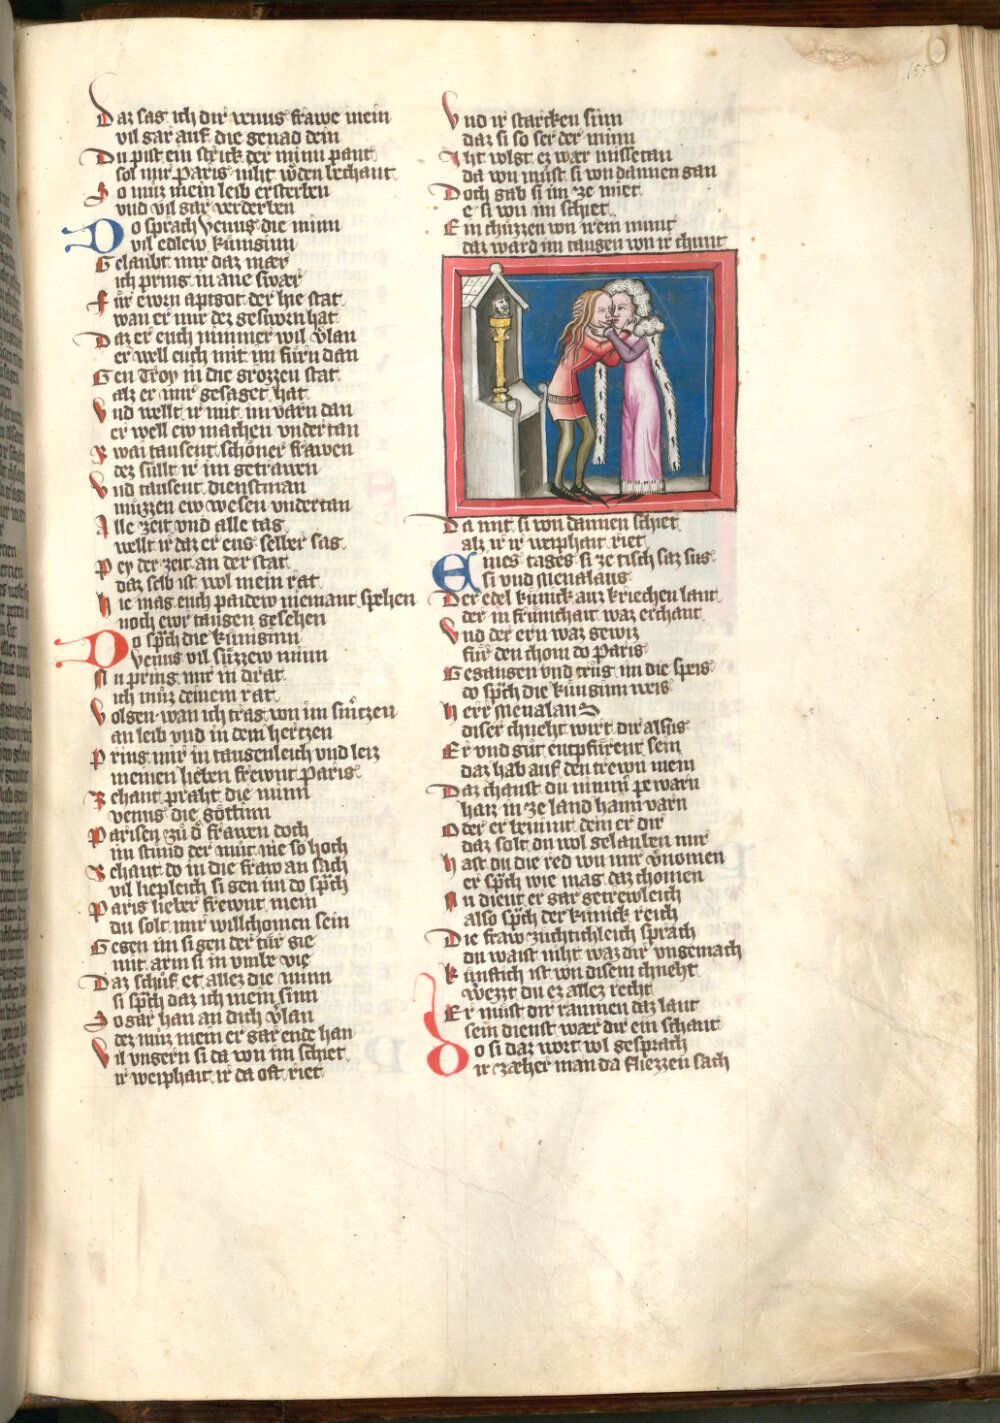 155
Daz sag ich dir venus frawe mein
vil gar auf die genad dein
Du pist ein strick der minn pant
sol mir paris niht wͤden bechant
So muͦz mein leib ersterben
vnd vil gar verderben
Do sprach Venus die minn
vil edlew kuͤniginn
Gelaubt mir daz mær
ich pring in ane swær
Fuͤr ewrn aptgot der hie stat
wan er mir dez gesworn hat
Daz er euch nimmer wil vͤlan
er well euch mit im fuͤrn dan
Gen Troy in die grozzen stat
alz er mir gesaget hat
Vnd wellt ir mit im varn dan
er well ew machen vndertan
Zwai tausent schoͤner frawen
dez suͤllt ir im getrawen
Vnd tausent dienstman
muͤzzen ew wesen vndertan
Alle zeit vnd alle tag
wellt ir daz er eus selber sag
Pey der zeit an der stat
daz selb ist wol mein rat
Hie mag euch paidew niemant spehen
noch ewr taugen gesehen
Do sp̄ch die kuͤniginn
Venus vil suͤzzew minn
Nu pring mir in drat
ich muͦz deinem rat
Volgen wan ich trag von im smͤrtzen
an leib vnd in dem hertzen
Pring mir in taugenleich vnd leiz
meinen lieben frewnt Paris
Zehant praht die minn
venus die goͤttinn
Parisen zuͦ dͤ frawen doch
im stuͦnd der muͦt nie so hoch
Zehant do in die fraw an sach
vil liepleich si gen im do sp̄ch
Paris lieber frewnt mein
du solt mir willchomen sein
Gegen im si gen der tuͤr gie
mit arm si in vmbe vie
Daz schuͦf et allez die minn
si sp̄ch daz ich mein sinn
So gar han an dich vͤlan
dez muͦz mein er gar ende han
Vil vngern si da von im schiet
ir weiphait ir da oft riet
Vnd ir starcken sinn
daz si so ser der minn
Iht volgt ez wær missetan
da von muͦst si von dannen gan
Doch gab si im ze miet
e si von im schiet
Ein chuͤzzen von irem munt
daz ward im taugen von ir chunt
Da mit si von dannen schiet
alz ir ir weiphait riet
Eines tages si ze tisch saz sus
si vnd Menalaus
Der edel kuͤnick auz kriechen lant
der in fruͤmchait waz erchant
Vnd der ern waz gewiz
fuͤr den chom do Paris
Gegangen vnd truͦg im die speis
do sp̄ch die kuͤnginn weis
Herr Menalaus
diser chneht wirt dir alsus
Er vnd guͦt entpfuͤrent sein
daz hab auf den trewn mein
Daz chanst du nimm̄ pewarn
haiz in ze land haim varn
Oder er nimmt dem er dir
daz solt du wol gelauben mir
Hast du die red von mir vͤnomen
er sp̄ch wie mag daz chomen
Nu dient er gar getrewleich
also sp̄ch der kuͤnick reich
Die fraw zuͤchtichleich sprach
du waist niht waz dir vngemach
Kuͤnftich ist von disem chneht
west du ez allez reht
Er muͦst dir raumen daz lant
sein dienst wær dir ein schant
Do si daz wort wol gesprach
ir zæher man da fliezzen sach